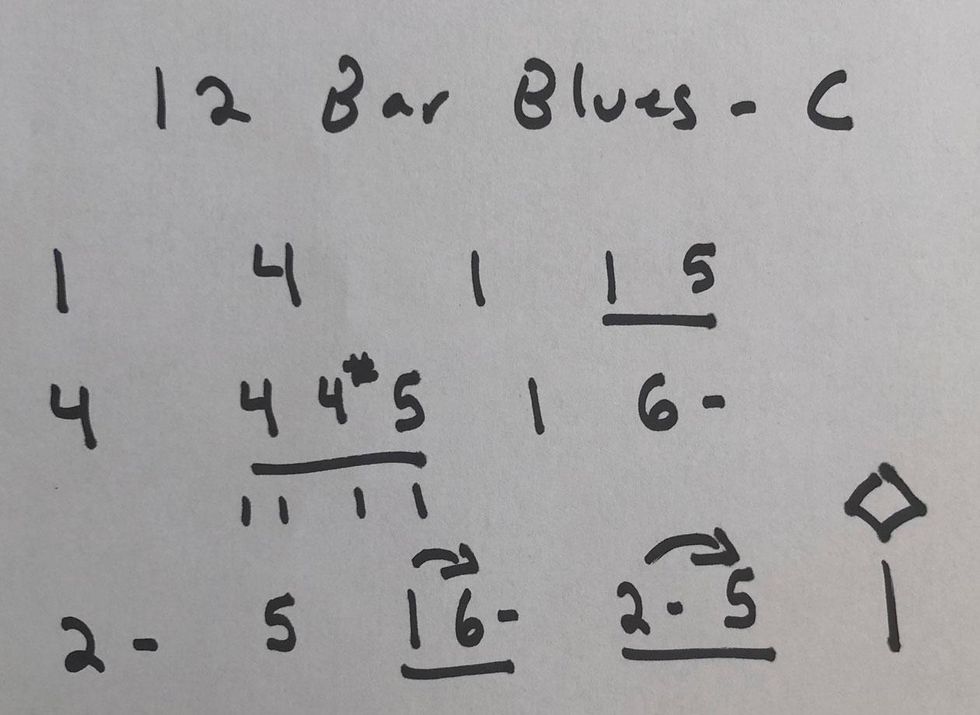 12 Bar Blues - C
1 4 1 1 5
4 4 4# 5 1 6-
11 1 1
2- 5 1 6- 2- 5 1